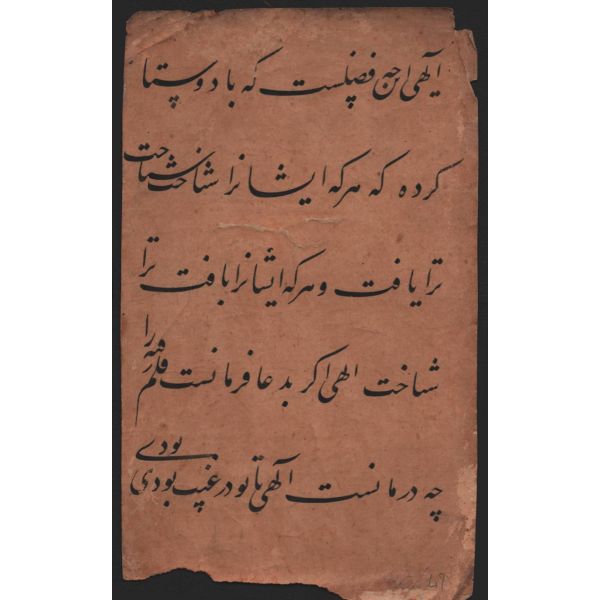 آلهی این چه فضلست که با دوستا
کرده که هرکه ایشانرا شناخت شناخت
ترا یافت و هرکه ایشانرا یافت ترا
شناخت الهی اکر بدعا فرمانست قلم رفته را
چه درمانست آلهی تا تو در غیب بودی بودی